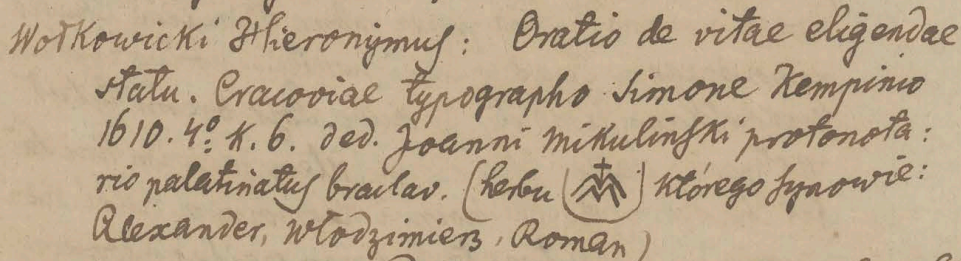 Wołkowicki Hieronymus: Oratio de vitae eligendae
statu. Cracoviae typographo Simone Kempinio
1610. 4º. k. 6. ded. Joanni Mikulinski protonota:
rio palatinatus braclav. (herbu którego synowie:
Alexander, Włodzimierz, Roman)